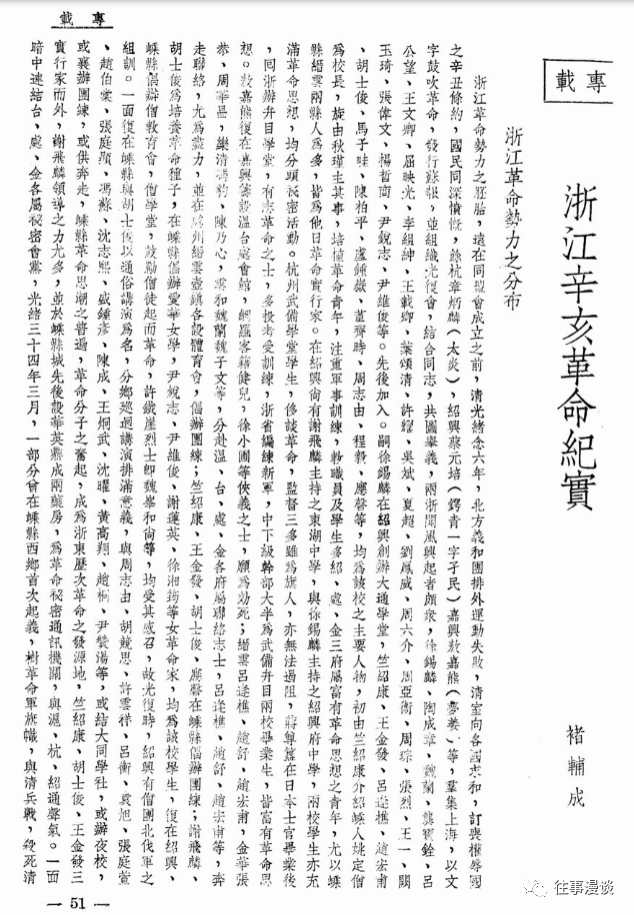 專載
專載
浙江辛亥革命紀實
褚輔成
浙江革命勢力之分布
浙江革命勢力之胚胎，遠在同盟會成立之前，清光緒念六年，北方義和團排外運動失敗，清室向各國求和，訂喪權辱國
之辛丑條約，國民同深憤慨，餘杭章炳麟（太炎），紹興蔡元培（鍔青一字孑民）嘉興敖嘉熊（夢姜）等，羣集上海，以文
字鼓吹革命，發行蘇報，並組織光復會，結合同志，共圖舉義，兩浙聞風興起者頗衆，徐錫麟、陶成章、魏蘭、龔寶銓、呂
公望、王文卿、屈映光、李組紳、王載卿、葉頌清、許耀、吳斌、夏超、劉鳳威、周六介、周亞衞、周琮、張烈、王一、關
玉琦、張偉文、楊哲商、尹銳志、尹維俊等。先後加入。嗣徐錫麟在紹興創辦大通學堂，竺紹康、王金發、呂逢樵、趙宏甫
、胡士俊、馬子畦、陳柏平、盧鍾嶽、董濟時、周志由、程毅、應磬等，均為該校之主要人物，初由竺紹康介紹嵊人姚定僧
為校長，旋由秋瑾主其事，培植革命青年，注重軍事訓練，教職員及學生多紹、處、金三府屬富有革命思想之青年，尤以嵊
縣縉雲兩縣人為多，皆為他日革命實行家。在紹興尚有謝飛麟主持之東湖中學，與徐錫麟主持之紹興府中學，兩校學生亦充
滿革命思想，均分頭秘密活動。杭州武備學堂學生，侈談革命，監督三多雖為旗人，亦無法遏阻，蔣尊簋在日本士官畢業後
，回浙辦弁目學堂，有志革命之士，多投考受訓練，浙省編練新軍，中下級幹部大半為武備弁目兩校畢業生，皆富有革命思
想。敖嘉熊復在嘉興設溫台處會館，網羅客籍健兒，徐小圃等俠義之士，願為効死；縉雲呂逢樵、趙舒、趙宏甫，金華張
恭、周華昌，樂清馮豹、陳乃心，雲和魏蘭魏子文等，分赴溫、台、處、金各府屬聯絡志士，呂逢樵、趙舒、趙宏甫等，奔
走聯絡，尤為盡力，並在處州縉雲壺鎮各設體育會，倡辦團練；竺紹康、王金發、胡士俊、應磬在嵊縣倡辦團練；謝飛麟、
胡士俊為培養革命種子，在嵊縣倡辦愛華女學，尹銳志、尹維俊、謝蓮英、徐湘筠等女革命家，均為該校學生，復在紹興、
嵊縣倡辦僧教育會，僧學堂，鼓勵僧徒起而革命，許鐵崖烈士卽魏峯和尚等，均受其感召，故光復時，紹興有僧團北伐軍之
組訓。一面復在嵊縣與胡士俊以通俗講演為名，分鄉巡迴講演排滿意義，與周志由、胡競思、許雲祥、呂衡、袁旭、張庭萱
、趙伯棠、張庭顯、馮蘇、沈志熙、戚鍾彥、陳成、王炯武、沈曜、黃高翔、趙桐、尹贊湯等，或結大同學社，或辦夜校，
或襄辦團練，或供奔走，嵊縣革命思潮之普遍，革命分子之奮起，成為浙東歷次革命之發源地，竺紹康、胡士俊、王金發三
實行家而外，謝飛麟領導之力尤多，並於嵊縣城先後設華英鼎成兩藥房，為革命秘密通訊機關，與滬、杭、紹通聲氣。一面
暗中連結台、處、金各屬秘密會黨，光緒三十四年三月，一部分曾在嵊縣西鄉首次起義，樹革命軍旗幟，與清兵戰，殺死清
— 51 —
往事漫谈